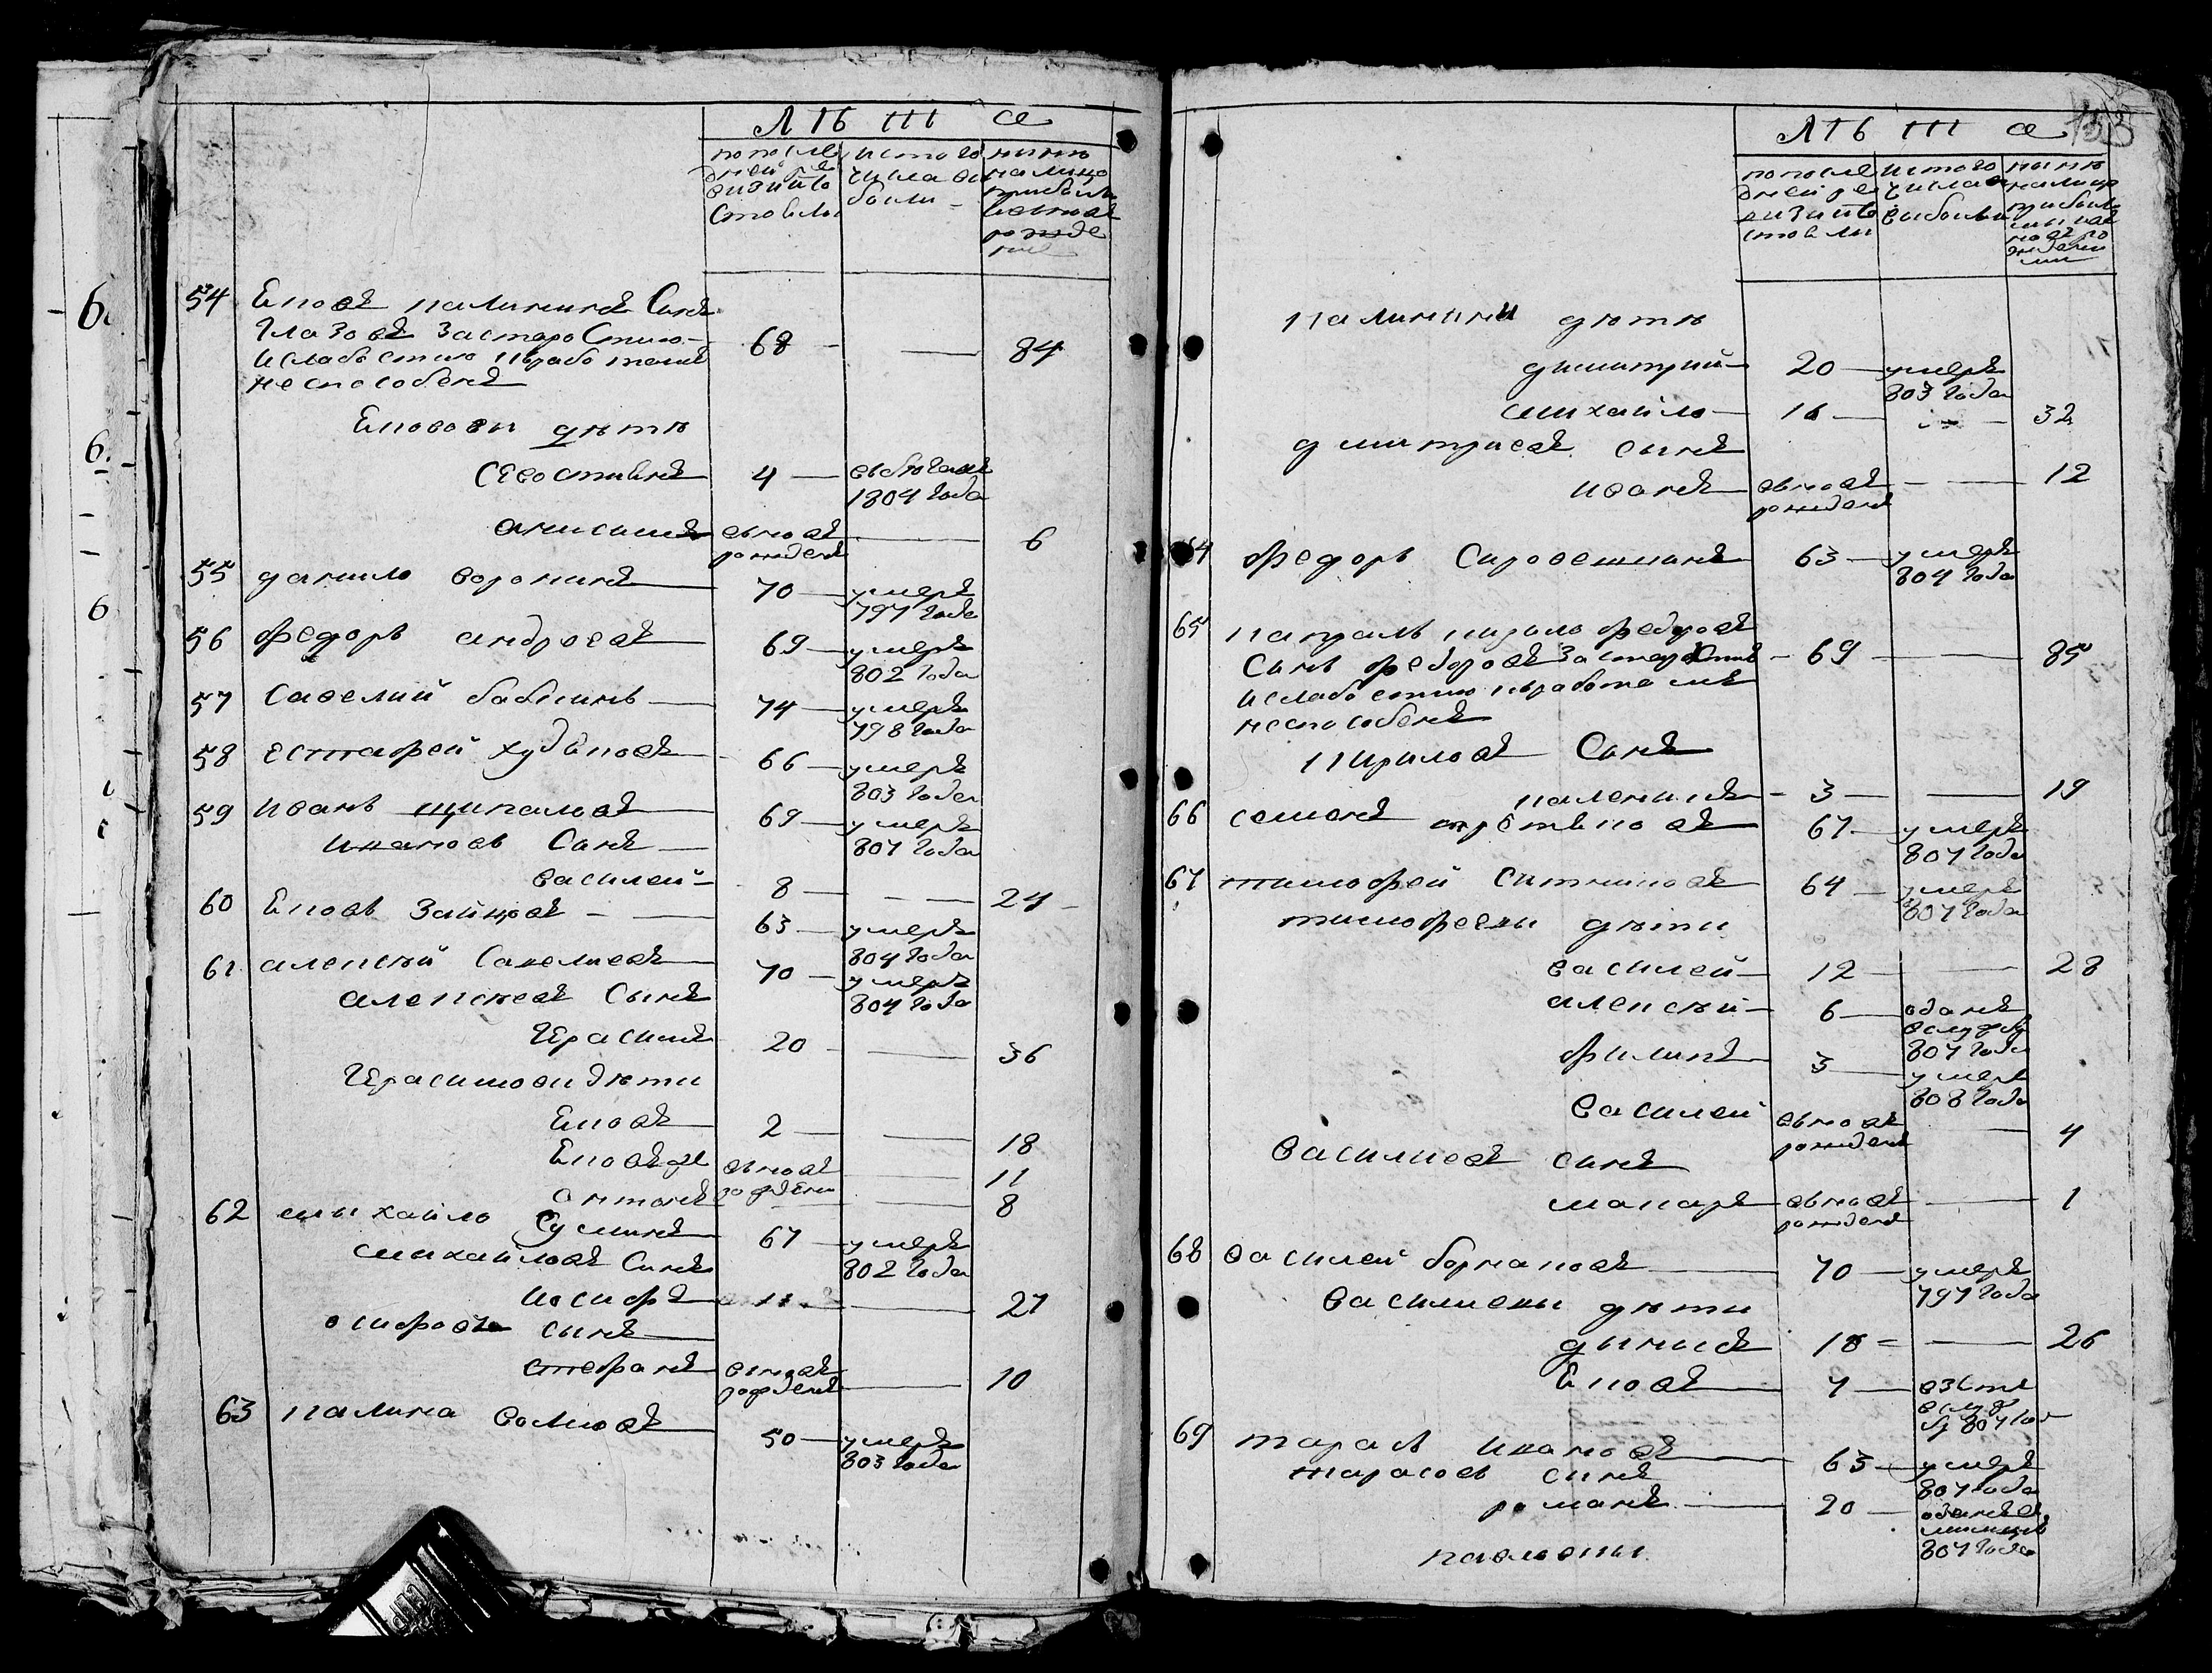 ЛѢТА
по после
дней ре
визіи
состояли
ис того
числа вы
были
ныне
на лицо
прибыли
вновь
рожде
ние
54 Яковъ Калининъ Сынъ
Глазовъ За старостию
и слабостию къ работамъ
неспособенъ
68 — 84
Яковови дѣтѣ
Севостиянъ 4
1804 года
Анисимъ вновъ
рожденъ — 6
55 данило воронинъ 70 умеръ
797 года
56 Федоръ андреевъ 69 умеръ
802 года
57 Савелий бабкинъ 74 умеръ
798 года
58 естафей худяковъ 66 умеръ
803 года
59 Иванъ щукаловъ 69 умеръ
807 года
Ивановъ Сынъ
василей 8 — 24
60 Яковъ Зайцовъ 63 умеръ
804 года
61 алексѣй Савельевъ 70 умеръ
804 года
алексѣевъ Сынъ
Герасимъ 20 — 36
Герасимови дѣти
Яковъ 2 — 18
Яковъ же вновъ — 11
антонъ рождени — 8
62 михайло Суминъ 67 умеръ
802 года
михайловъ Сынъ
Иосифъ 11 — 27
осифовъ сынъ
стефанъ вновъ
рожденъ — 10
63 калина волковъ 50 умеръ
803 года
ЛѢТА
по послѣ
дней ре
визіи
состояли
ис того
числа
выбыли
ныне
на лицо
прибыли
калинины дѣтѣ
димитрий 20 умеръ
803 года
михайло 16 — 32
дмитриевъ сынъ
иванъ вновъ
рожденъ — 12
64 Федоръ 63 умеръ
804 года
65 капралъ кирило федоровъ
Сынъ федоровъ За старостию
и слабостию къ работамъ
неспособенъ
69 — 85
кириловъ Сынъ
3 — 19
66 семенъ третьяковъ 67 умеръ
807 года
67 тимофей Ситниковъ 64 умеръ
807 года
тимофееви дѣти
василей 12 — 28
алексѣй 6 одатъ
в службу
807 года
филипъ 3 умеръ
808 года
василей вновъ
рожденъ — 4
василиевъ синъ
макаръ вновъ
рожденъ — 1
68 василей 70 умеръ
797 года
василиевы дѣти
динисъ 10 — 26
Яковъ 7 взятъ
в служ
бу 807 год
69 тарасъ ивановъ 63 умеръ
807 года
тарасовъ синъ
романъ 20
807 года
павловы